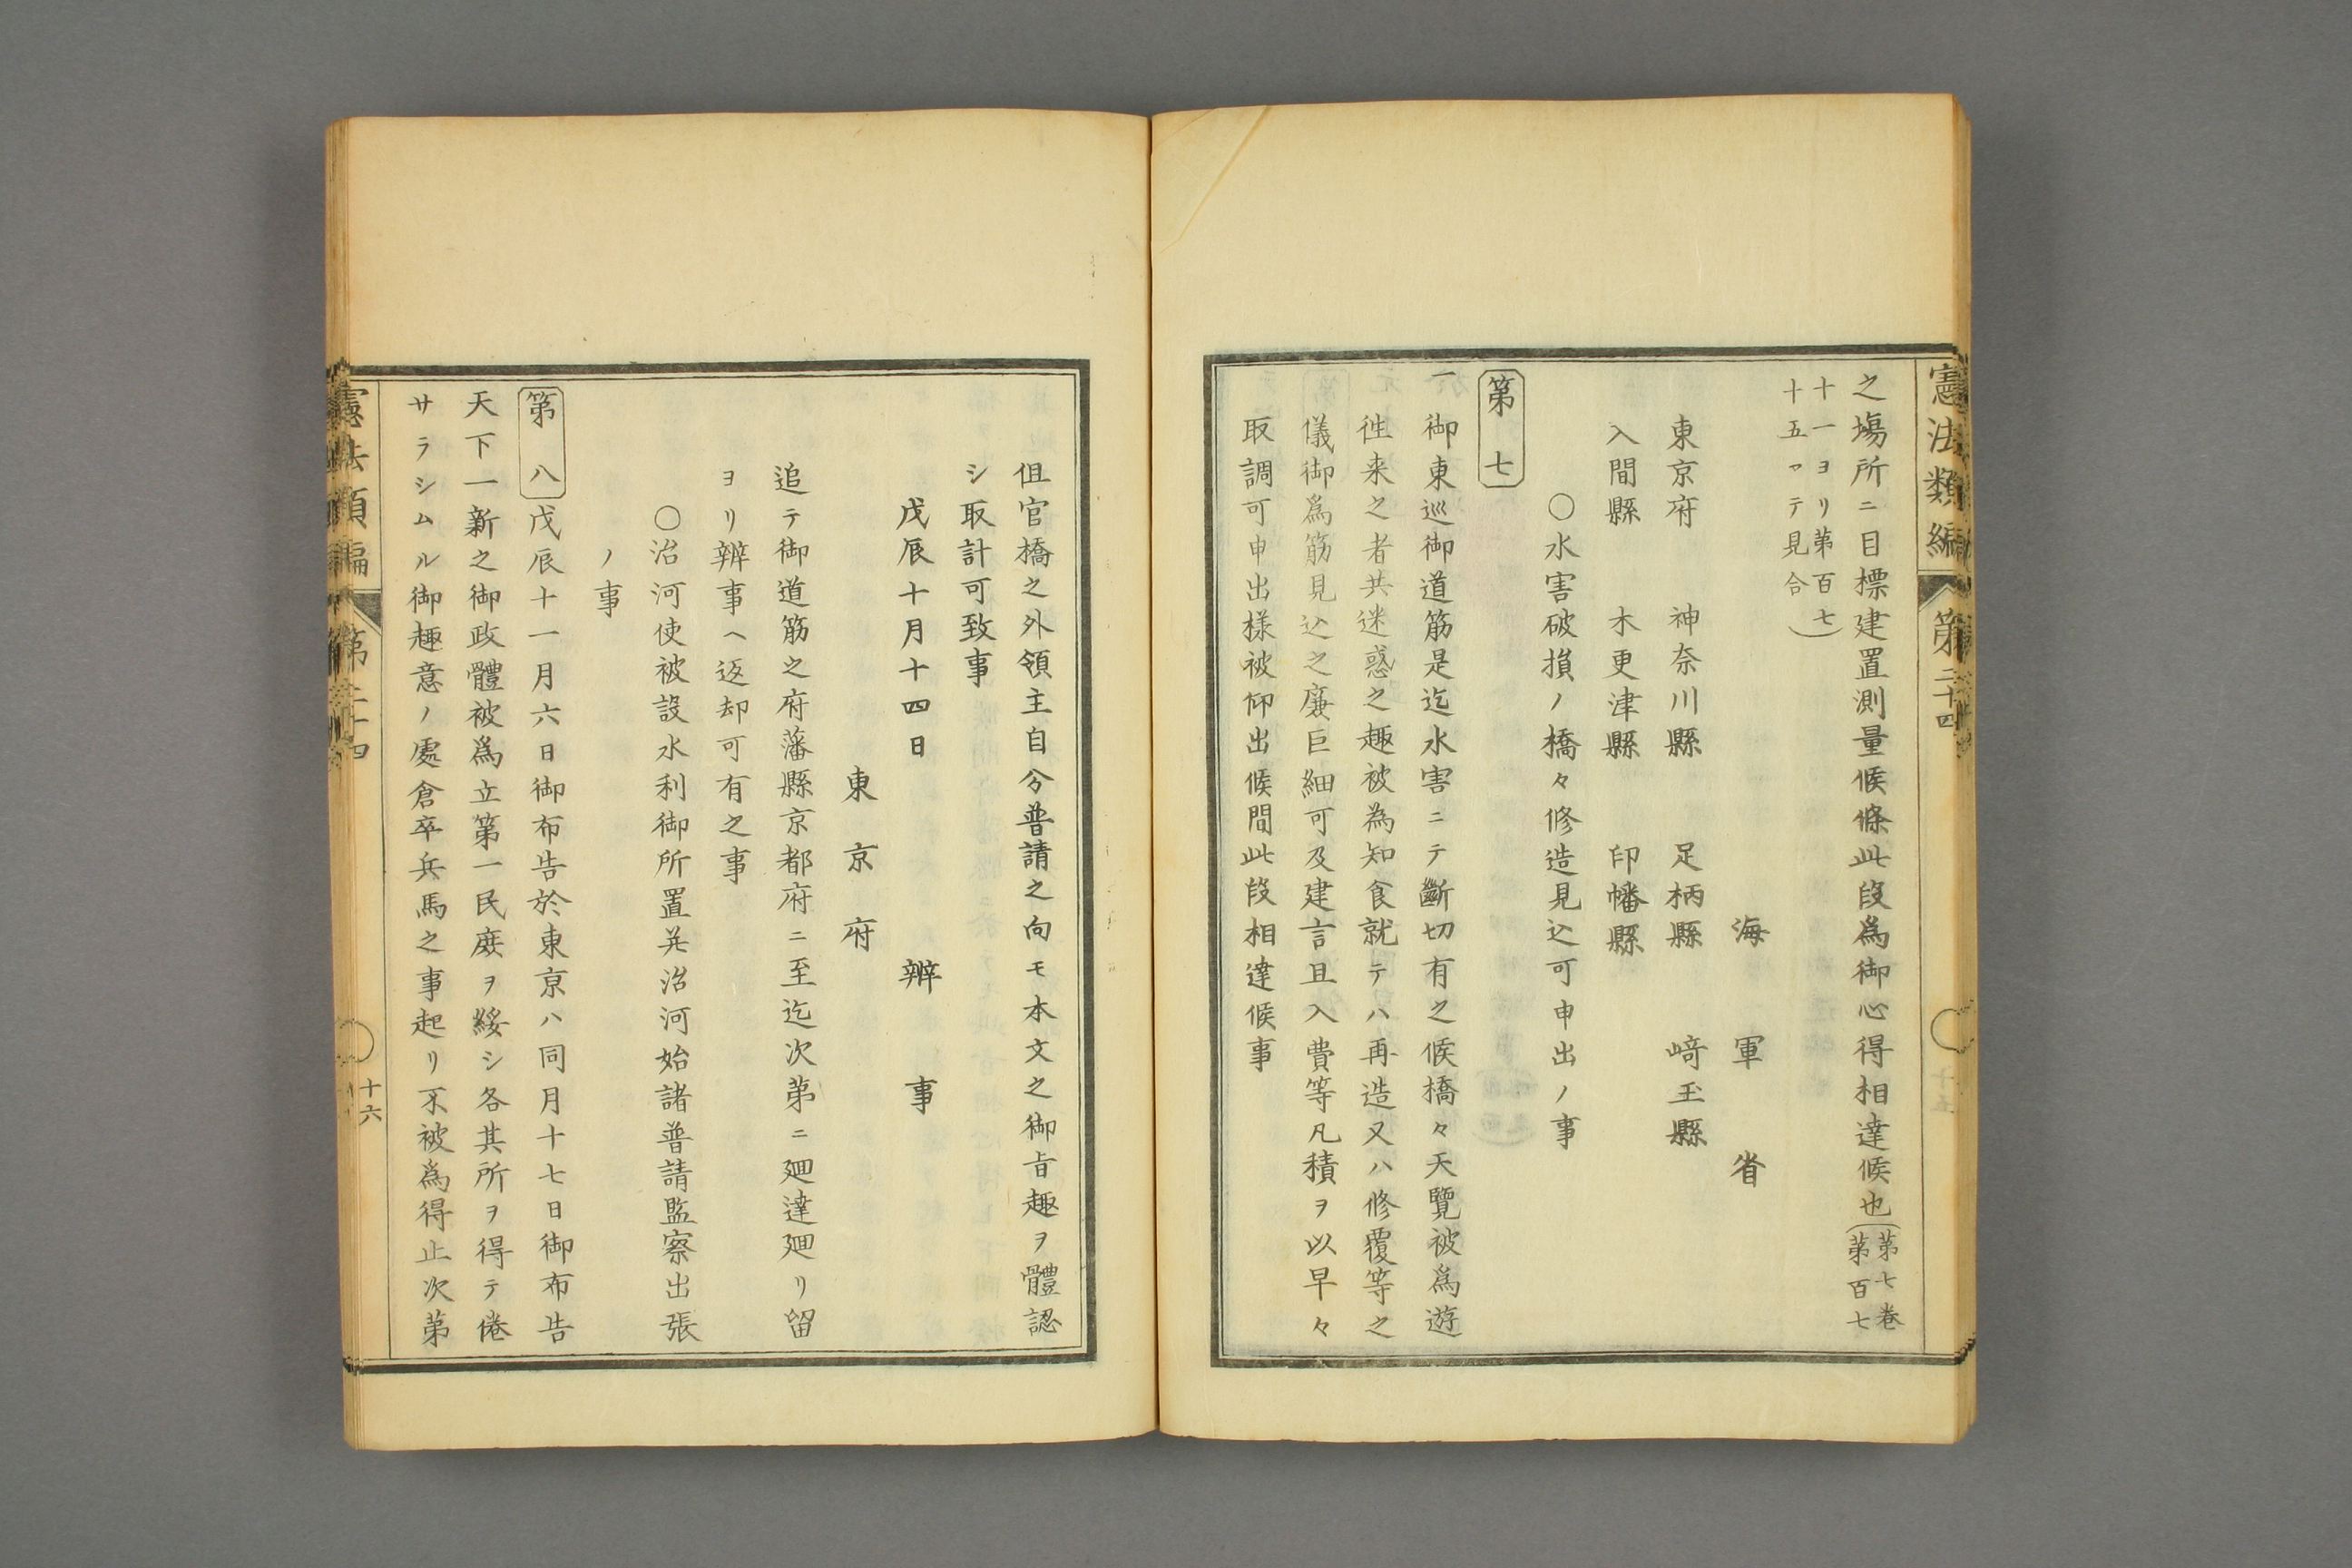 憲法類編 第二十四
之塲所ニ目標建置測量候條此段爲御心得相達候也(第七卷第百七
十一ヨリ第百七十五マテ見合)
海軍省
東京府 神奈川縣 足柄縣 﨑玉縣
入間縣 木更津縣 印幡縣
○水害破損ノ橋々修造見込可申出ノ事
第七
一御東巡御道筋是迄水害ニテ斷切有之候橋々天覽被爲遊
徃来之者共迷惑之趣被為知食就テハ再造又ハ修覆等之
儀御爲筋見込之廉巨細可及建言且入費等凡積ヲ以早々
取調可申出様被仰出候間此段相達候事
伹官橋之外領主自分普請之向モ本文之御旨趣ヲ體認
シ取計可致事
戊辰十月十四日 辨事
東京府
追テ御道筋之府藩縣京都府ニ至迄次第ニ廻達廻リ留
ヨリ辨事ヘ返却可有之事
○治河使被設水利御所置並治河始諸普請監察出張
ノ事
第八 戊辰十一月六日御布告於東京ハ同月十七日御布告
天下一新之御政體被爲立第一民庶ヲ綏シ各其所ヲ得テ倦
サラシムル御趣意ノ處倉卒兵馬之事起リ不被爲得止次第
憲法類編 第二十四
十六